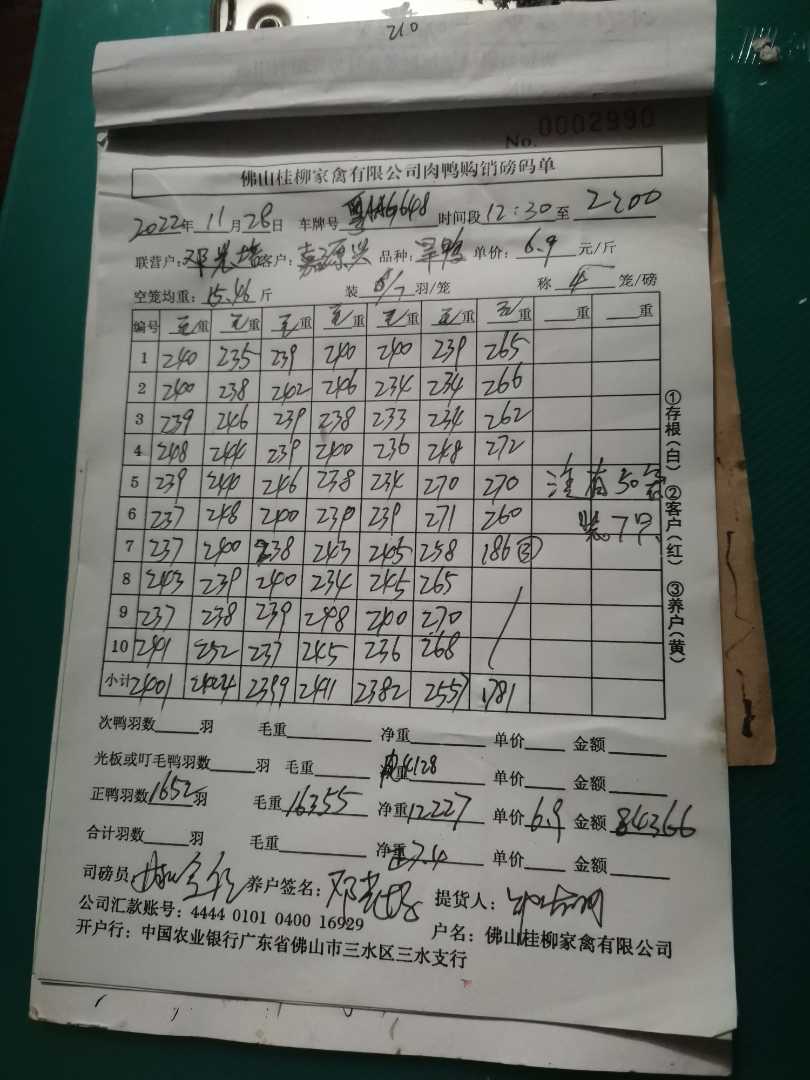 210
No. 0002990
佛山桂柳家禽有限公司肉鸭购销磅码单
2022年 11月28日 车牌号 粤AAG648 时间段 12:30 至 2200
联营户: 邓 客户: 嘉源兴 品种: 旱鸭 单价: 6.9 元/斤
空笼均重: 15.46 斤 装 6/7 羽/笼 称 4 笼/磅
编号 毛重 毛重 毛重 毛重 毛重 毛重 毛重 重 重
1 240 235 239 240 240 239 265
2 240 238 242 246 234 234 266
3 239 246 239 238 233 234 262
4 248 244 239 240 236 248 272
5 239 240 246 238 234 270 270 注有50
6 237 248 240 239 239 271 260 装7只
7 237 240 238 243 245 258 186③
8 243 239 240 234 245 265
9 237 238 239 248 240 270
10 241 252 237 245 236 268
小计 2401 2399 2411 2382 2557 1781
次鸭羽数 羽 毛重 净重 单价 金额
光板或叮毛鸭羽数 羽 毛重 4128 单价 金额
正鸭羽数 1652 羽 毛重 16355 净重 12227 单价 6.9 金额 84366
合计羽数 羽 毛重 净重 7.4 单价 金额
司磅员 养户签名: 邓 提货人:
公司汇款账号: 4444 0101 0400 16929 户名: 佛山桂柳家禽有限公司
开户行: 中国农业银行广东省佛山市三水区三水支行
①存根(白) ②客户(红) ③养户(黄)